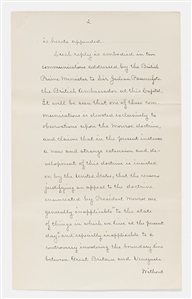 2
is hereto appended.
Such reply is embodied in two
communications addressed by the British
Prime Minister to Sir Julian Pauncefote
the British Ambassador at this Capital.
It will be seen that one of these com-
munications is devoted exclusively to
observations upon the Monroe doctrine,
and claims that in the present instance
a new and strange extension and de-
velopment of this doctrine is insisted
on by the United States, that the reasons
justifying an appeal to the doctrine
enunciated by President Monroe are
generally inapplicable "to the state
of things in which we live at the present
day," and especially inapplicable to a
controversy involving the boundary line
between Great Britain and Venezuela.
Without